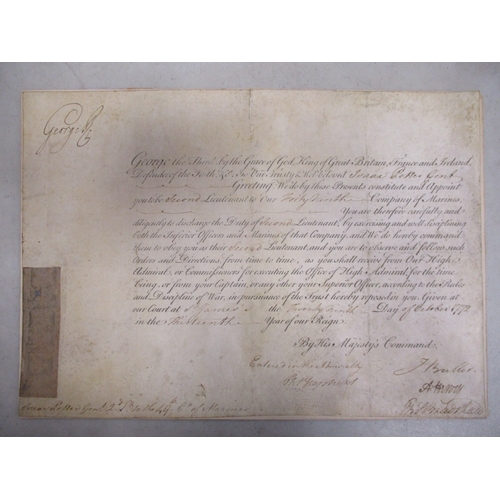 George R
George the Third by the Grace of God, King of Great Britain, France and Ireland,
Defender of the Faith &c. To Our Trusty & Welbeloved Isaac Potter Gent
Greeting. We do by these Presents constitute and Appoint
you to be Second Lieutenant to Our Forty Ninth Company of Marines,
You are therefore carefully and
diligently to discharge the Duty of Second Lieutenant, by exercising and well disciplining
both the Inferior Officers and Marines of that Company, and We do hereby command
them to obey you as their Second Lieutenant, and you are to observe and follow such
Orders and Directions, from time to time, as you shall receive from Our High
Admiral, or Commissioners for executing the Office of High Admiral for the time
being, or from your Captain, or any other your Superior Officer, according to the Rules
and Discipline of War, in pursuance of the Trust hereby reposed in you. Given at
our Court at St James's the Twenty Day of October 1772
in the Thirteenth Year of our Reign.
By His Majesty's Command.
Entered in the
J Buller
A Hervey
Isaac Potter Gent 2d Lt to the 49 Co of Marines